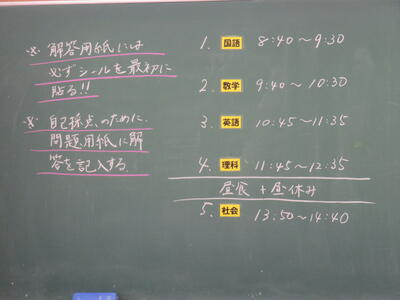 ※ 解答用紙には
必ずシールを最初に
貼る!!
※ 自己採点のために、
問題用紙に解
答を記入する。
1. 国語 8:40〜9:30
2. 数学 9:40〜10:30
3. 英語 10:45〜11:35
4. 理科 11:45〜12:35
昼食 + 昼休み
5. 社会 13:50〜14:40